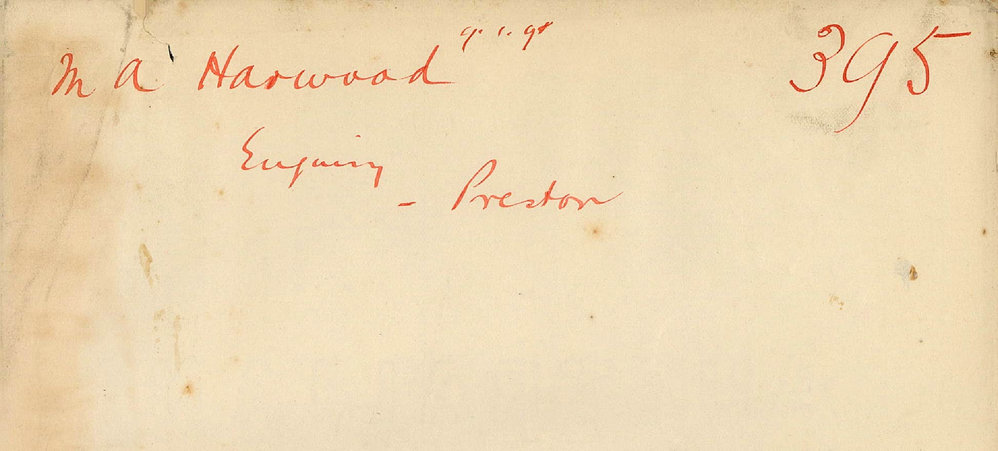 M A Harwood 9.1.98 395
Enquiry
- Preston